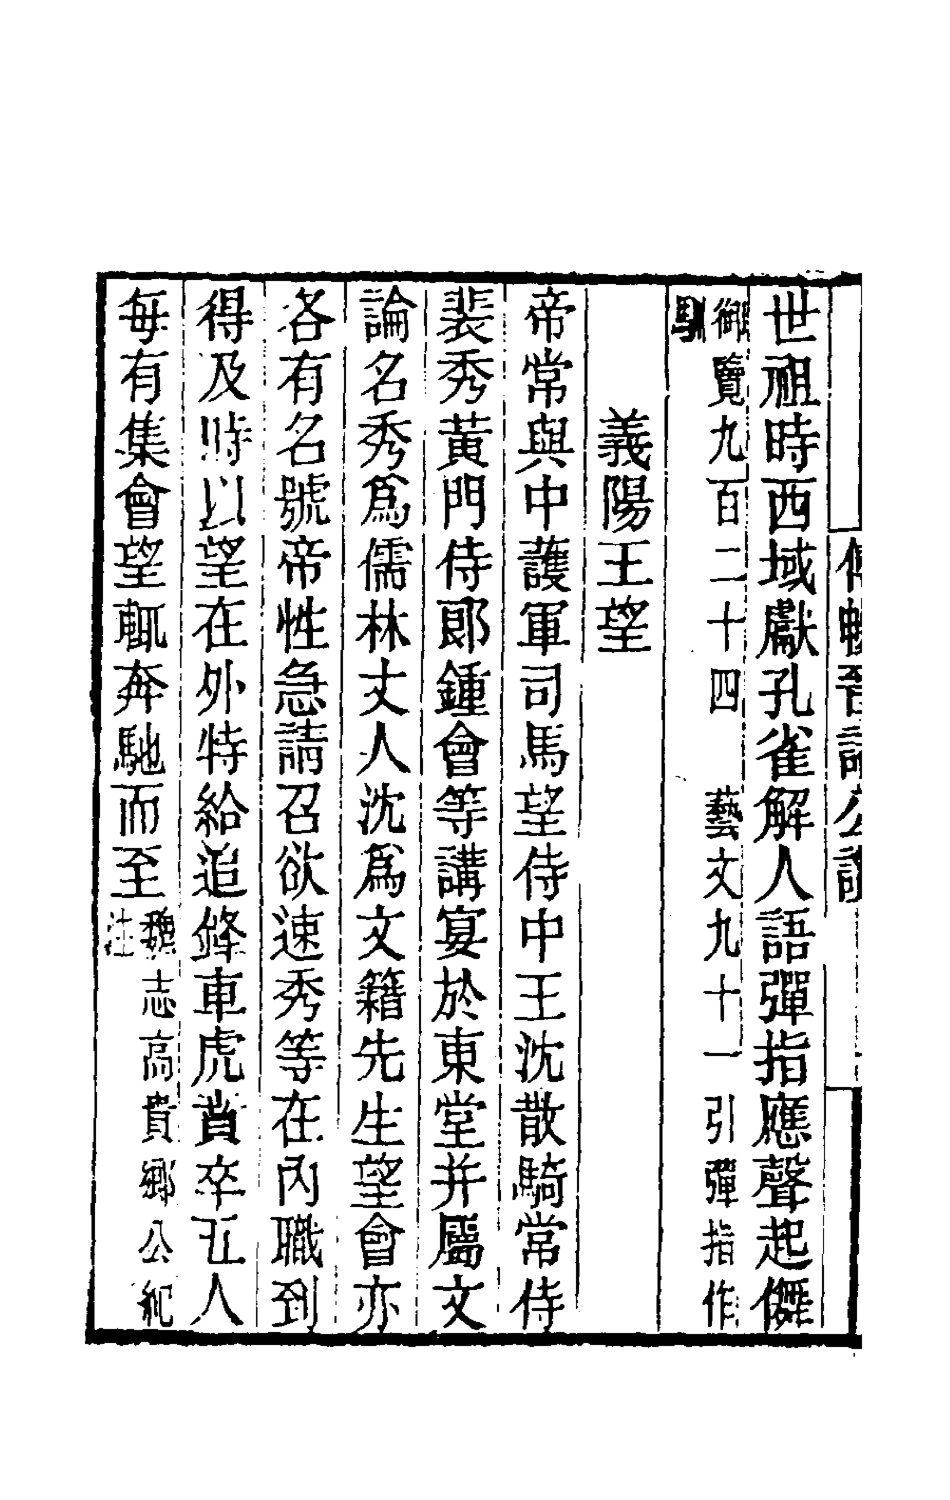 傅暢晉諸公讚
世祖時西域獻孔雀解人語彈指應聲起儛
御覽九百二十四　藝文九十一引彈指作
馴
義陽王望
帝常與中護軍司馬望侍中王沈散騎常侍
裴秀黃門侍郎鍾會等講宴於東堂并屬文
論名秀爲儒林丈人沈爲文籍先生望會亦
各有名號帝性急請召欲速秀等在內職到
得及時以望在外特給追鋒車虎賁卒五人
每有集會望輒奔馳而至魏志高貴鄉公紀
注